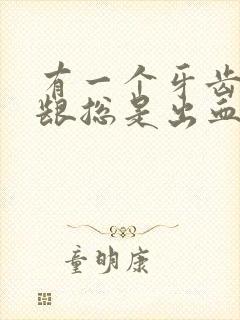 有一个牙齿
龈总是出血
童明康